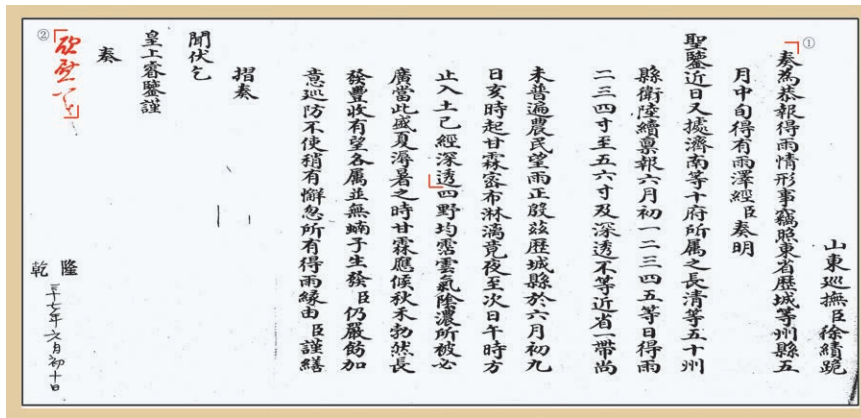 山東巡撫臣徐績跪
①
奏為恭報得雨情形事竊照東省歷城等州縣五
月中旬得有雨澤經臣奏明
聖鑒近日又據濟南等十府所属之長清等五十州
縣衛陸續禀報六月初一二三四五等日得雨
二三四寸至五六寸及深透不等近省一帶尚
未普遍農民望雨正殷茲歷城縣於六月初九
日亥時起甘霖密布淋漓竟夜至次日午時方
止入土已經深透四野均霑雲氣陰濃所被必
廣當此盛夏溽暑之時甘霖應候秋禾勃然長
發豐收有望各属並無蝻子生發臣仍嚴飭加
意巡防不使稍有懈忽所有得雨緣由臣謹繕
摺奏
聞伏乞
皇上睿鑒謹
奏
②
欣慰覽之
乾隆三十七年六月初十日